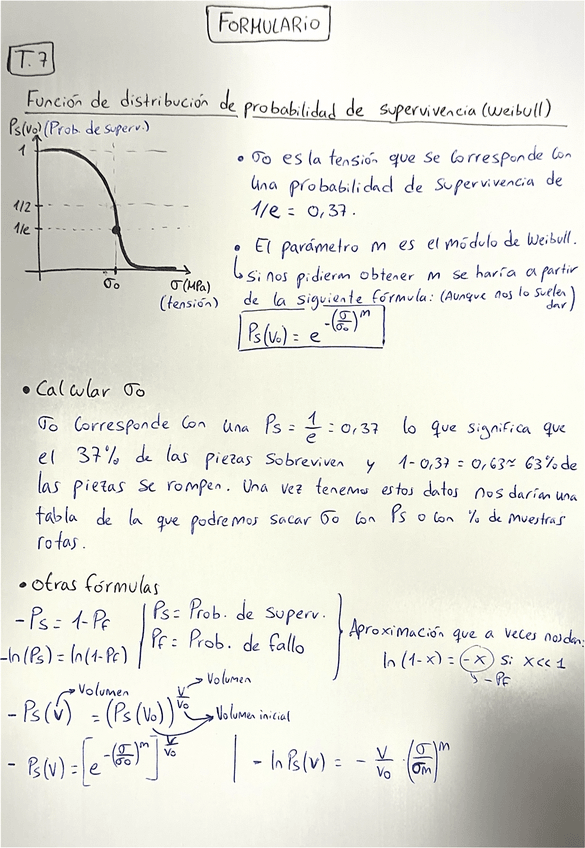 FORMULARIO
T.7
Función de distribución de probabilidad de supervivencia (Weibull)
Ps(V₀) (Prob. de superv.)
1
1/2
1/e
σ₀
σ(MPa)
(tensión)
• σ₀ es la tensión que se corresponde con
una probabilidad de supervivencia de
1/e = 0,37.
• El parámetro m es el módulo de Weibull.
↳ Si nos pidieran obtener m se haría a partir
de la siguiente fórmula: (Aunque nos lo suelen
dar)
Ps(V₀) = e^(-(σ/σ₀)^m)
• Calcular σ₀
σ₀ corresponde con una Ps = 1/e = 0,37 lo que significa que
el 37% de las piezas sobreviven y 1-0,37 = 0,63 ≈ 63% de
las piezas se rompen. Una vez tenemos estos datos nos darían una
tabla de la que podremos sacar σ₀ con Ps o con % de muestras
rotas.
• Otras fórmulas
- Ps = 1-Pf
- ln(Ps) = ln(1-Pf)
Ps = Prob. de superv.
Pf = Prob. de fallo
Aproximación que a veces nos dan:
ln(1-x) = -x si x<<1
↳ -Pf
- Ps(V) = (Ps(V₀))^(V/V₀)
Volumen
Volumen
Volumen inicial
- Ps(V) = [e^(-(σ/σ₀)^m)]^(V/V₀)
- ln Ps(V) = - V/V₀ · (σ/σm)^m